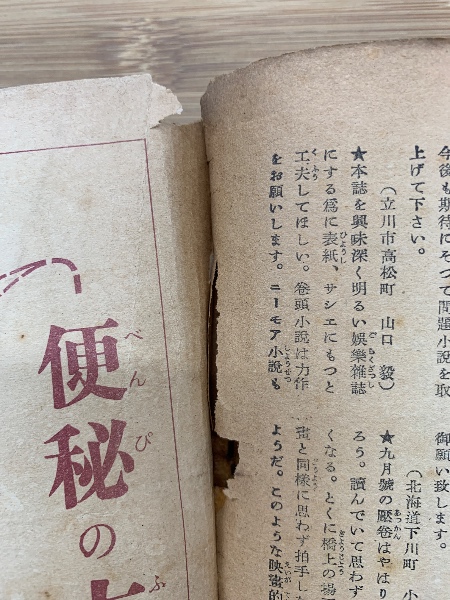 今後も期待にそつて問題小説を取
上げて下さい。
(立川市高松町 山口 毅)
★本誌を興味深く明るい娯樂雜誌
にする爲に表紙、サシエにもつと
工夫してほしい。卷頭小説は力作
をお願いします。ユーモア小説も
御願い致します。
(北海道下川町 小
★九月號の壓卷はやはり
ろう。讀んでいて思わず
くなる。とくに橋上の
と同樣に思わず拍手し
ようだ。このような映畵的
便秘の
べんぴ